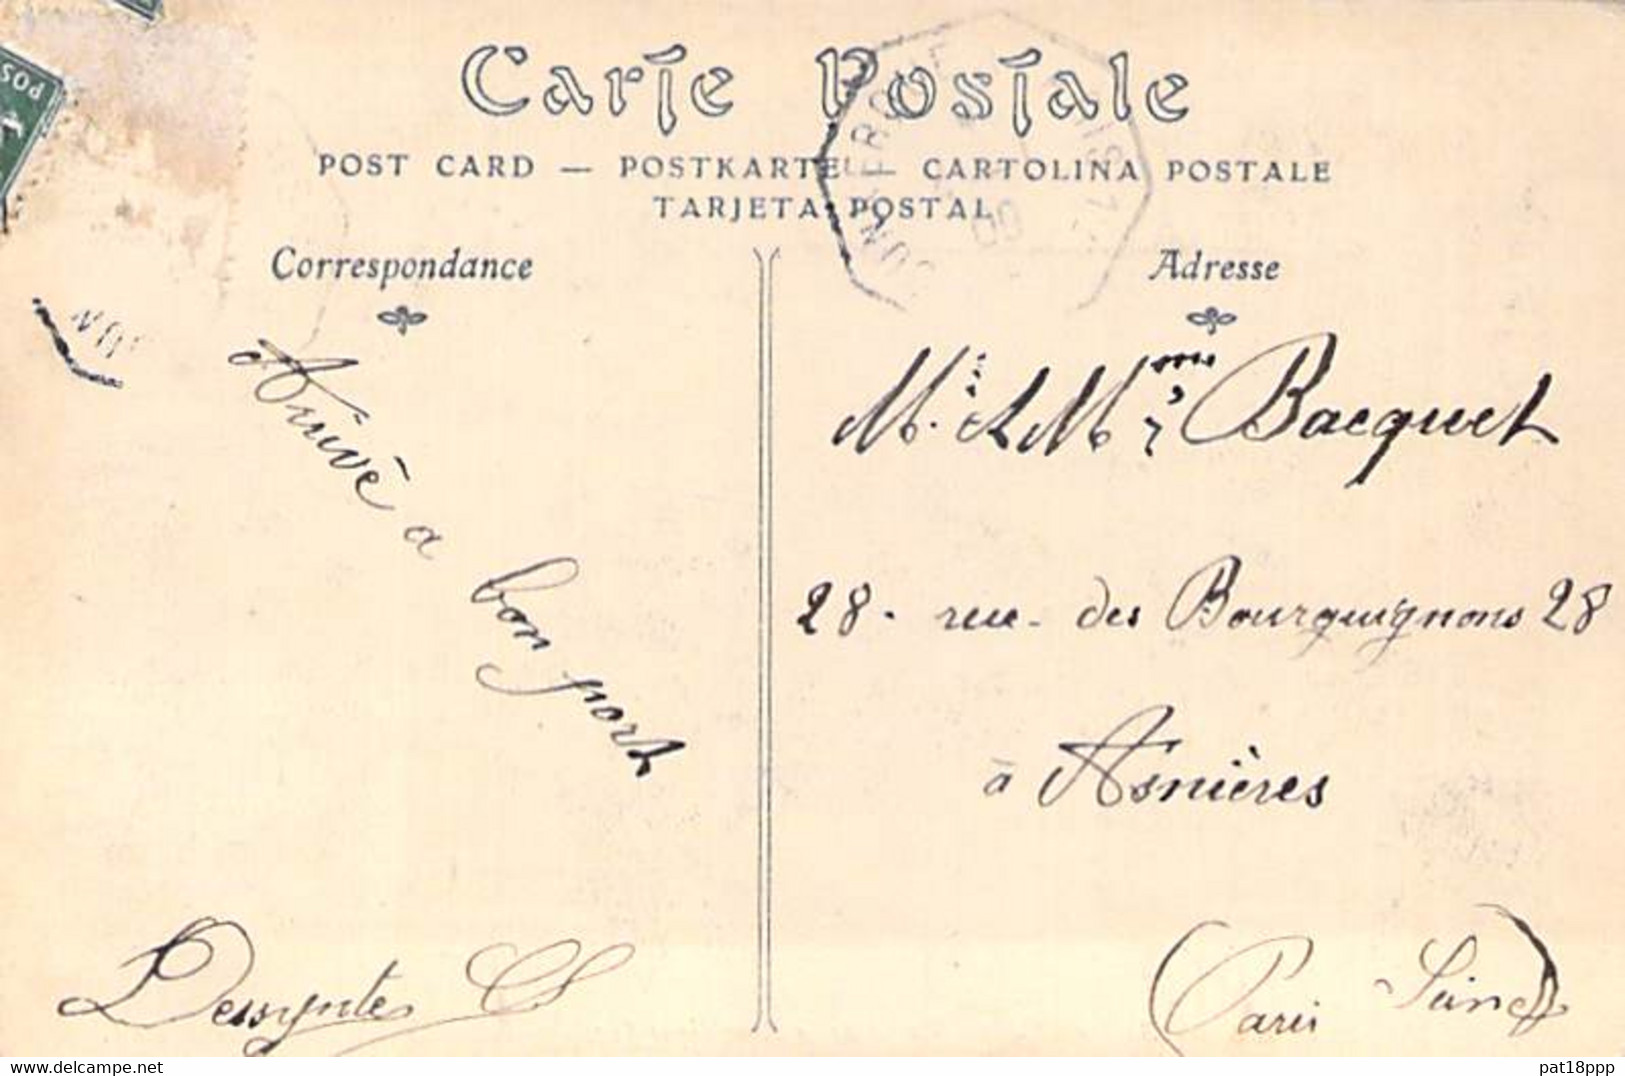 Carte Postale
POST CARD — POSTKARTE — CARTOLINA POSTALE
TARJETA POSTAL
Correspondance
Adresse
POS
Arrivé a bon port
M. & Mme Bacquet
28 - rue - des Bourguignons 28
à Asnières
(Paris Seine)
pat18ppp